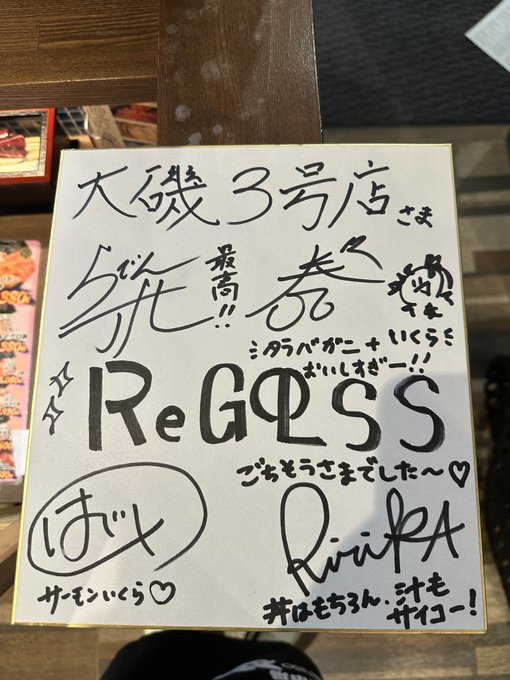 大磯3号店さま
らでん
最高!!
奏
ミタラバガニ+いくらミ
おいしすぎー!!
ReGLOSS
ごちそうさまでした〜♡
はじメ
サーモンいくら♡
RirikA
丼はもちろん、汁も
サイコー!